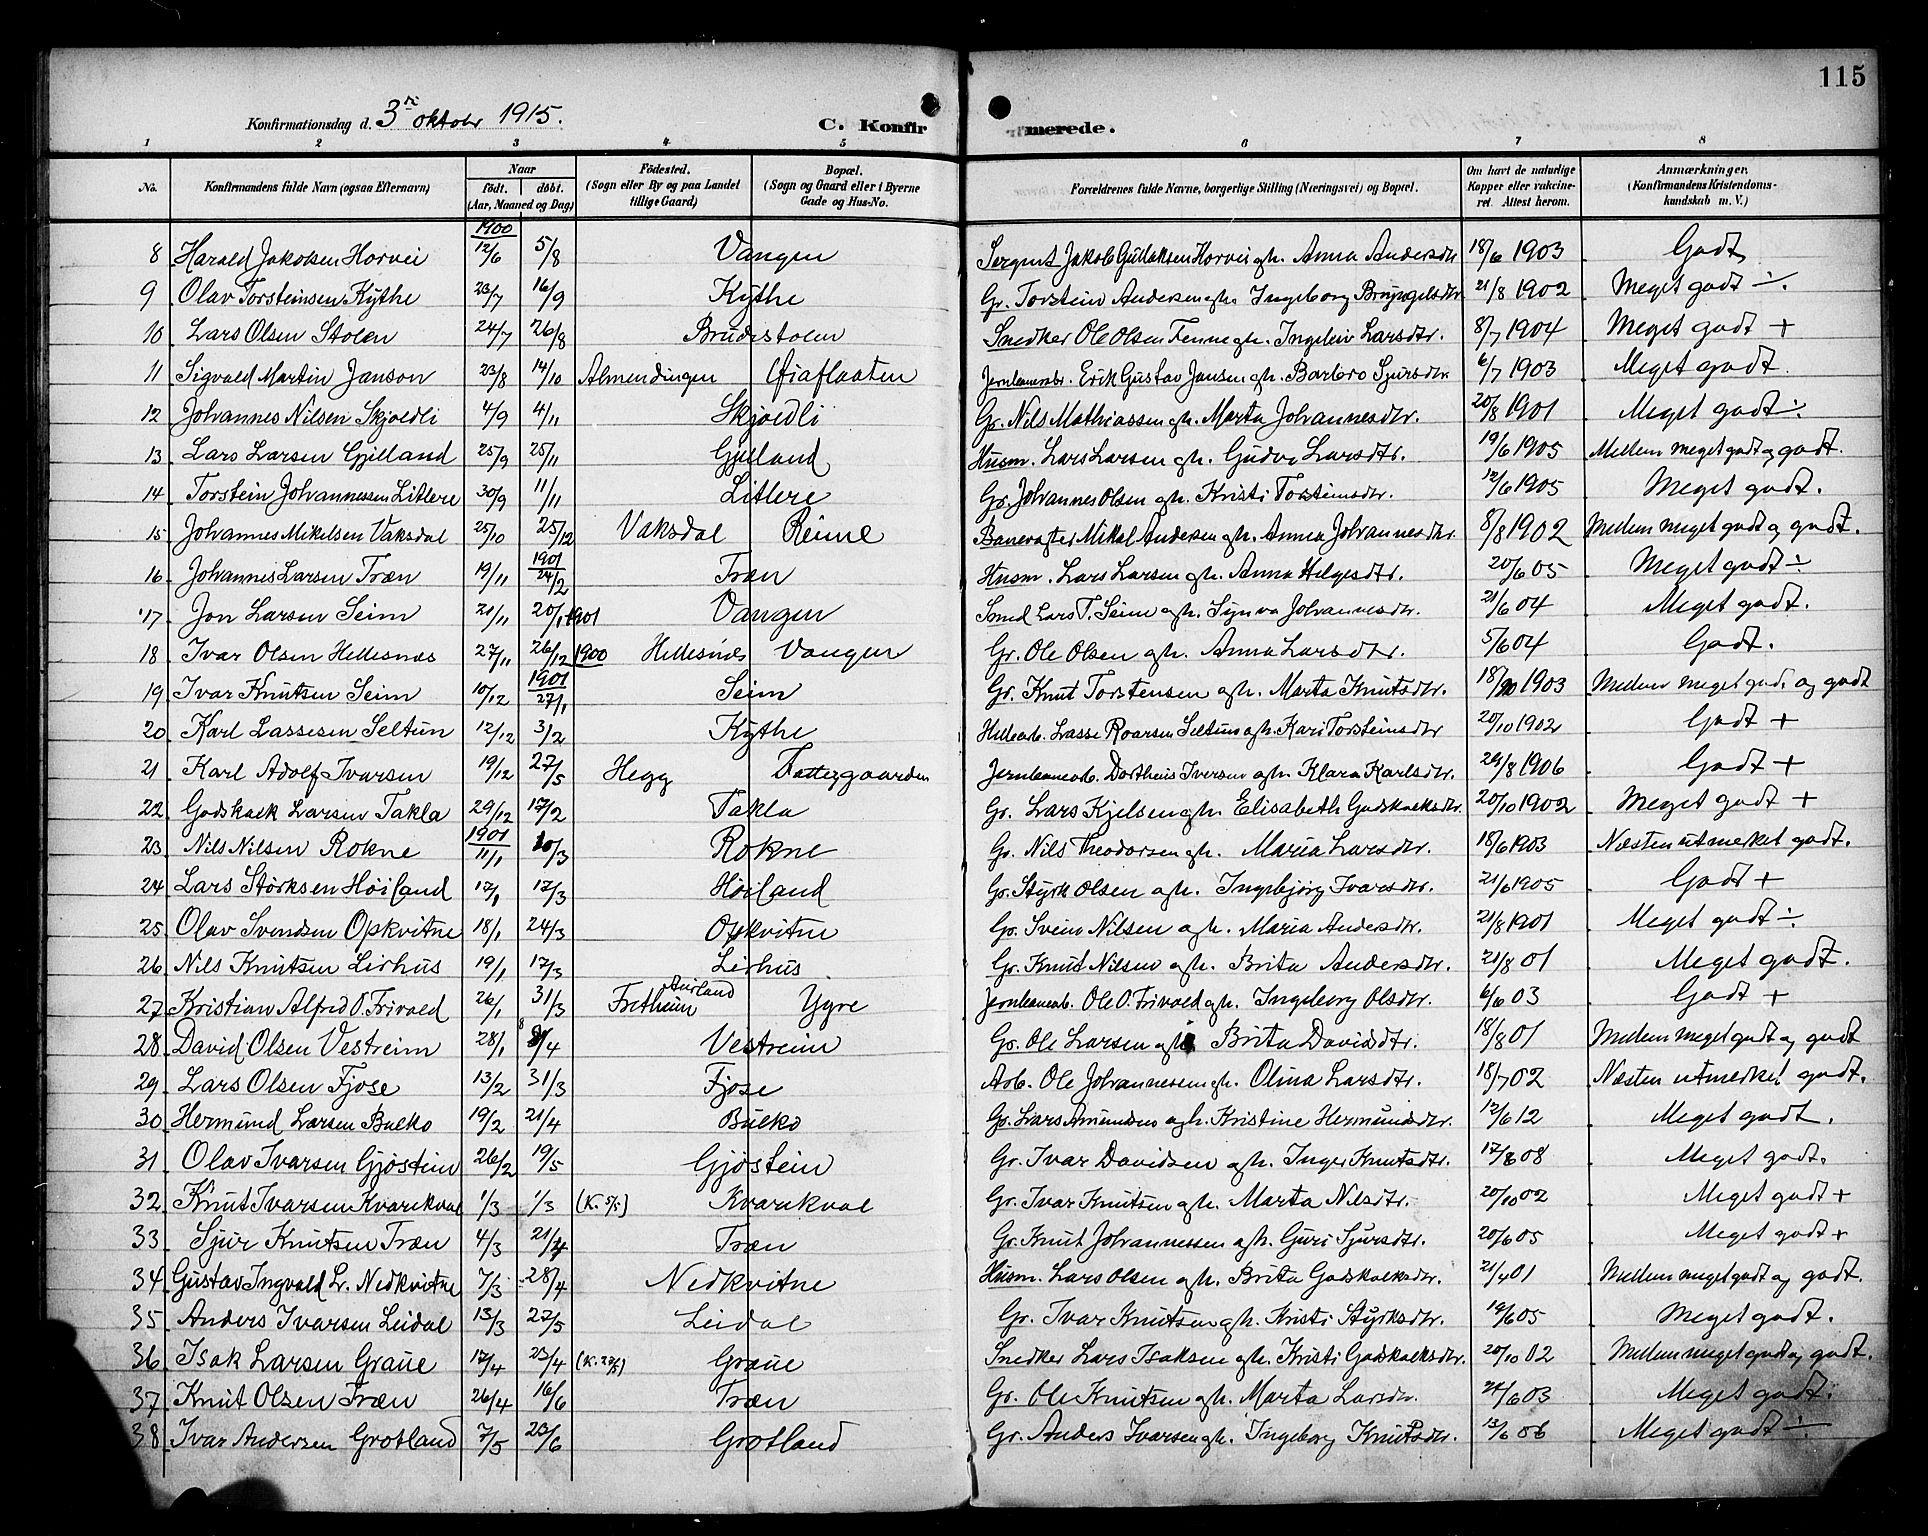 115
Konfirmationsdag d. 3die oktobr 1915.
C. Konfirmerede.
1 2 3 4 5 6 7 8
No. Konfirmandens fulde Navn (ogsaa Efternavn) Naar født. døbt. (Aar, Maaned og Dag) Fødested. (Sogn eller By og paa Landet tillige Gaard) Bopæl. (Sogn og Gaard eller i Byerne Gade og Hus-No. Forældrenes fulde Navne, borgerlige Stilling (Næringsvei) og Bopæl. Om havt de naturlige Kopper eller vakcineret. Attest herom. Anmærkninger. (Konfirmandens Kristendomskundskab m. V.)
1900
8 Harald Jakobsen Horvei 12/6 5/8 Vangen Sergent Jakob Gullaksen Horvei gh. Anna Andersdtr 18/6 1903 Godt
9 Olav Torsteinsen Kythe 23/7 16/9 Kythe Gr. Torstein Andersen gh. Ingeborg Bryngelsdtr 21/8 1902 Meget godt ÷.
10 Lars Olsen Stolen 24/7 26/8 Brudestolen Snedker Ole Olsen Fenne gh. Ingeleiv Larsdtr. 8/7 1904 Meget godt +
11 Sigvald Martin Janson 23/8 14/10 Almendingen Øiaflaaten Jernbanearb. Erik Gustav Jansen gh. Barbro Sjursdtr 6/7 1903 Meget godt.
12 Johannes Nilsen Skjoedli 4/9 4/11 Skjoedli Gr. Nils Mathiassen gh. Marta Johannesdtr. 20/8 1901 Meget godt ÷
13 Lars Larsen Gjelland 25/9 25/11 Gjelland Husm. Lars Larsen gh. Gudve Larsdtr. 19/6 1905 Mellem meget godt og godt.
14 Torstein Johannessen Litlere 30/9 11/11 Litlere Gr. Johannes Olsen gh. Kristi Torsteinsdtr. 12/6 1905 Meget godt.
15 Johannes Mikelsen Vaksdal 25/10 25/12 Vaksdal Reime Banevogter Mikel Andersen gh. Anna Johannesdtr. 8/8 1902 Mellem meget godt og godt.
16 Johannes Larsen Træn 19/11 1901 24/2 Træn Husm. Lars Larsen gh. Anna Helgesdtr. 20/6 05 Meget godt ÷
17 Jon Larsen Seim 21/11 20/1 1901 Vangen Smed Lars T. Seim gh. Synva Johannesdtr. 21/6 04 Meget godt.
18 Ivar Olsen Hellesnæs 27/11 26/12 1900 Hellesnæs Vangen Gr. Ole Olsen gh. Anna Larsdtr. 5/6 04 Godt.
19 Ivar Knutsen Seim 10/12 1901 27/1 Seim Gr. Knut Torstensen gh. Marta Knutsdtr. 18/10 1903 Mellem meget godt og godt
20 Karl Lassesen Seltun 12/12 3/2 Kythe Lasse Roarsen Seltun gh. Kari Torsteinsdtr 20/10 1902 Godt +
21 Karl Adolf Ivarsen 19/12 27/5 Hegg Jernbanearb. Dortheus Iversen gh. Klara Karlsdtr. 29/8 1906 Godt +
22 Godskalk Larsen Takla 29/12 17/2 Takla Gr. Lars Kjelsen gh. Elisabeth Godskalksdtr. 20/10 1902 Meget godt +
23 Nils Nilsen Rokne 1901 11/1 10/3 Rokne Gr. Nils Theodorsen gh. Maria Larsdtr. 18/6 1903 Næsten utmerket godt.
24 Lars Størksen Høiland 17/1 17/3 Høiland Gr. Styrk Olsen gh. Ingebjørg Ivarsdtr. 21/6 1905 Godt +
25 Olav Svendsen Opkvitne 18/1 24/3 Opkvitne Gr. Svein Nilsen gh. Maria Andersdtr. 21/8 1901 Meget godt ÷
26 Nils Knutsen Lirhus 19/1 17/3 Lirhus Gr. Knut Nilsen gh. Brita Andersdtr. 21/8 01 Meget godt.
27 Kristian Alfred O. Frivold 26/1 31/3 Aurland Fretheim Ygre Jernbanearb. Ole O. Frivold gh. Ingeborg Olsdtr. 6/6 03 Godt +
28 David Olsen Vestreim 28/1 8/4 Vestreim Gr. Ole Larsen gh. Brita Davidsdtr. 18/8 01 Mellem meget godt og godt
29 Lars Olsen Fjose 13/2 31/3 Fjose Arb. Ole Johannessen gh. Olina Larsdtr. 18/7 02 Næsten utmerket godt.
30 Hermund Larsen Bulko 19/2 21/4 Bulko Gr. Lars Amundsen gh. Kristine Hermundsdtr. 12/6 12 Meget godt.
31 Olav Ivarsen Gjøstein 26/2 19/5 Gjøstein Gr. Ivar Davidsen gh. Inger Knutsdtr. 17/6 08 Meget godt.
32 Knut Ivarsen Kvarekval 1/3 1/3 (K. 5/5) Kvarekval Gr. Ivar Knutsen gh. Marta Nilsdtr. 20/10 02 Meget godt +
33 Sjur Knutsen Træn 4/3 21/4 Træn Gr. Knut Johannessen gh. Guri Sjursdtr. 20/6 05 Meget godt +
34 Gustav Ingvald L. Nedkvitne 7/3 28/4 Nedkvitne Husm. Lars Olsen gh. Brita Godskalksdtr. 21/4 01 Mellem meget godt og godt.
35 Anders Ivarsen Leidal 13/3 27/5 Leidal Gr. Ivar Knutsen gh. Kristi Styrksdtr. 19/6 05 Meget godt.
36 Isak Larsen Graue 17/4 23/4 Graue Snedker Lars Isaksen gh. Kristi Godskalksdtr. 20/10 02 Mellem meget godt og godt.
37 Knut Olsen Træn 26/4 16/6 Træn Gr. Ole Knutsen gh. Marta Larsdtr. 24/6 03 Meget godt.
38 Ivar Andersen Grotland 7/5 23/6 Grotland Gr. Anders Ivarsen gh. Ingeborg Knutsdtr. 13/6 06 Meget godt ÷